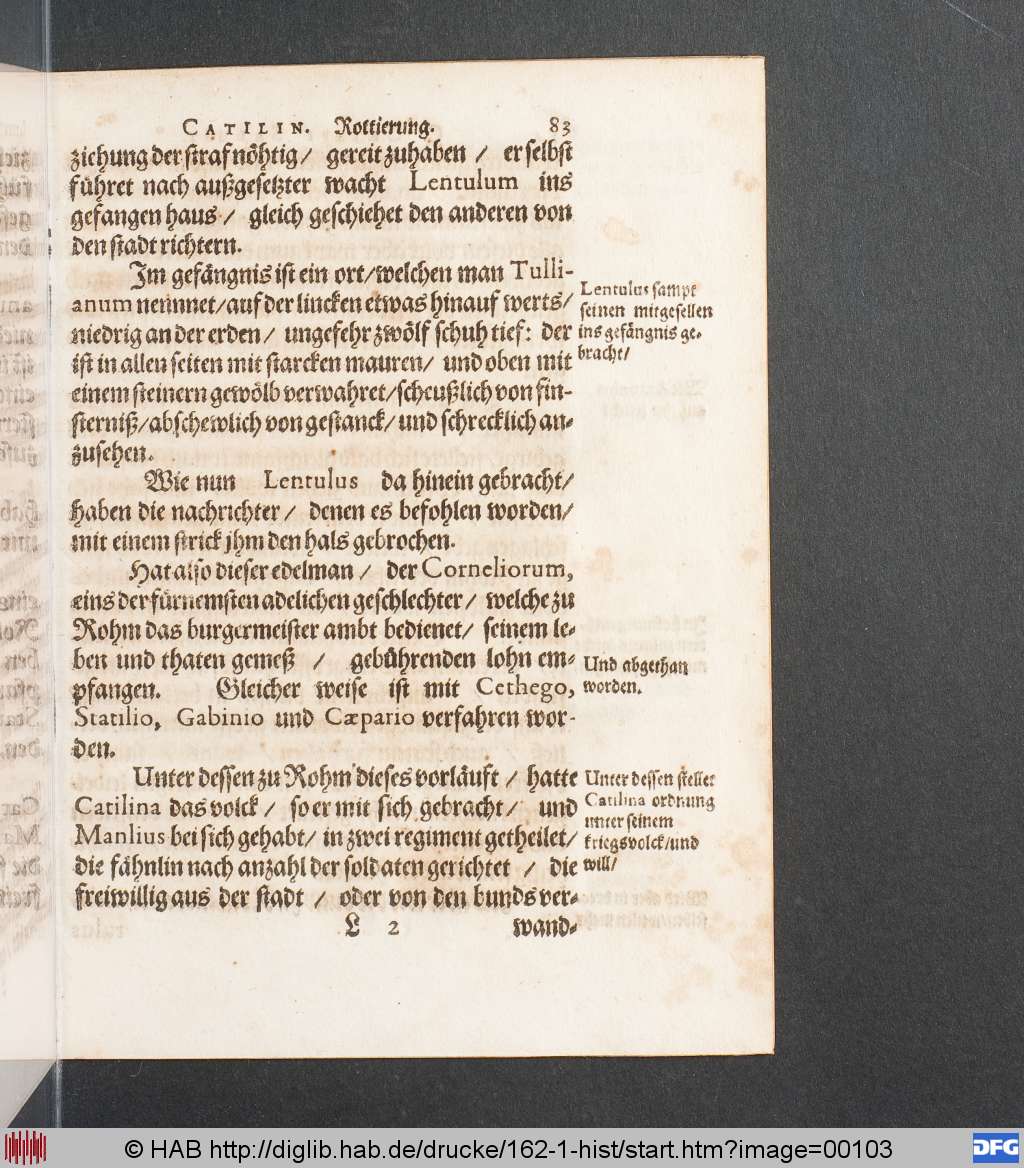 CATILIN. Rottierung. 83
ziehung der straf nöhtig/ gereit zuhaben / er selbst
führet nach außgesetzter wacht Lentulum ins
gefangen haus / gleich geschiehet den anderen von
den stadt richtern.
Im gefängnis ist ein ort/welchen man Tulli-
anum nennnet/auf der lincken etwas hinauf werts/
niedrig an der erden / ungefehr zwölf schuh tief: der
ist in allen seiten mit starcken mauren/ und oben mit
einem steinern gewölb verwahret/scheußlich von fin-
sterniß/abschewlich von gestanck/und schrecklich an-
zusehen.
Lentulus sampt
seinen mitgesellen
ins gefängnis ge-
bracht/
Wie nun Lentulus da hinein gebracht/
haben die nachrichter / denen es befohlen worden/
mit einem strick jhm den hals gebrochen.
Hat also dieser edelman / der Corneliorum,
eins der fürnemsten adelichen geschlechter/ welche zu
Rohm das burgermeister ambt bedienet/ seinem le-
ben und thaten gemeß / gebührenden lohn em-
pfangen. Gleicher weise ist mit Cethego,
Statilio, Gabinio und Cæpario verfahren wor-
den.
Und abgethan
worden.
Unter dessen zu Rohm dieses vorläuft / hatte
Catilina das volck / so er mit sich gebracht/ und
Manlius bei sich gehabt/ in zwei regiment getheilet/
die fähnlin nach anzahl der soldaten gerichtet / die
freiwillig aus der stadt / oder von den bunds ver-
Unter dessen stellet
Catilina ordnung
unter seinem
kriegsvolck/und
will/
L 2 wand-
© HAB http://diglib.hab.de/drucke/162-1-hist/start.htm?image=00103
DFG